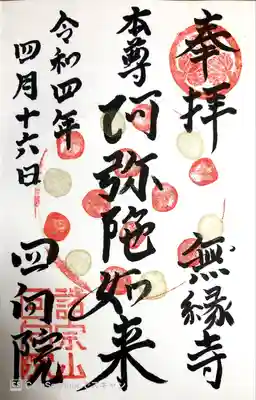 奉拝
無縁寺
本尊
阿弥陀如来
令和四年
四月十六日
回向院
諸宗山